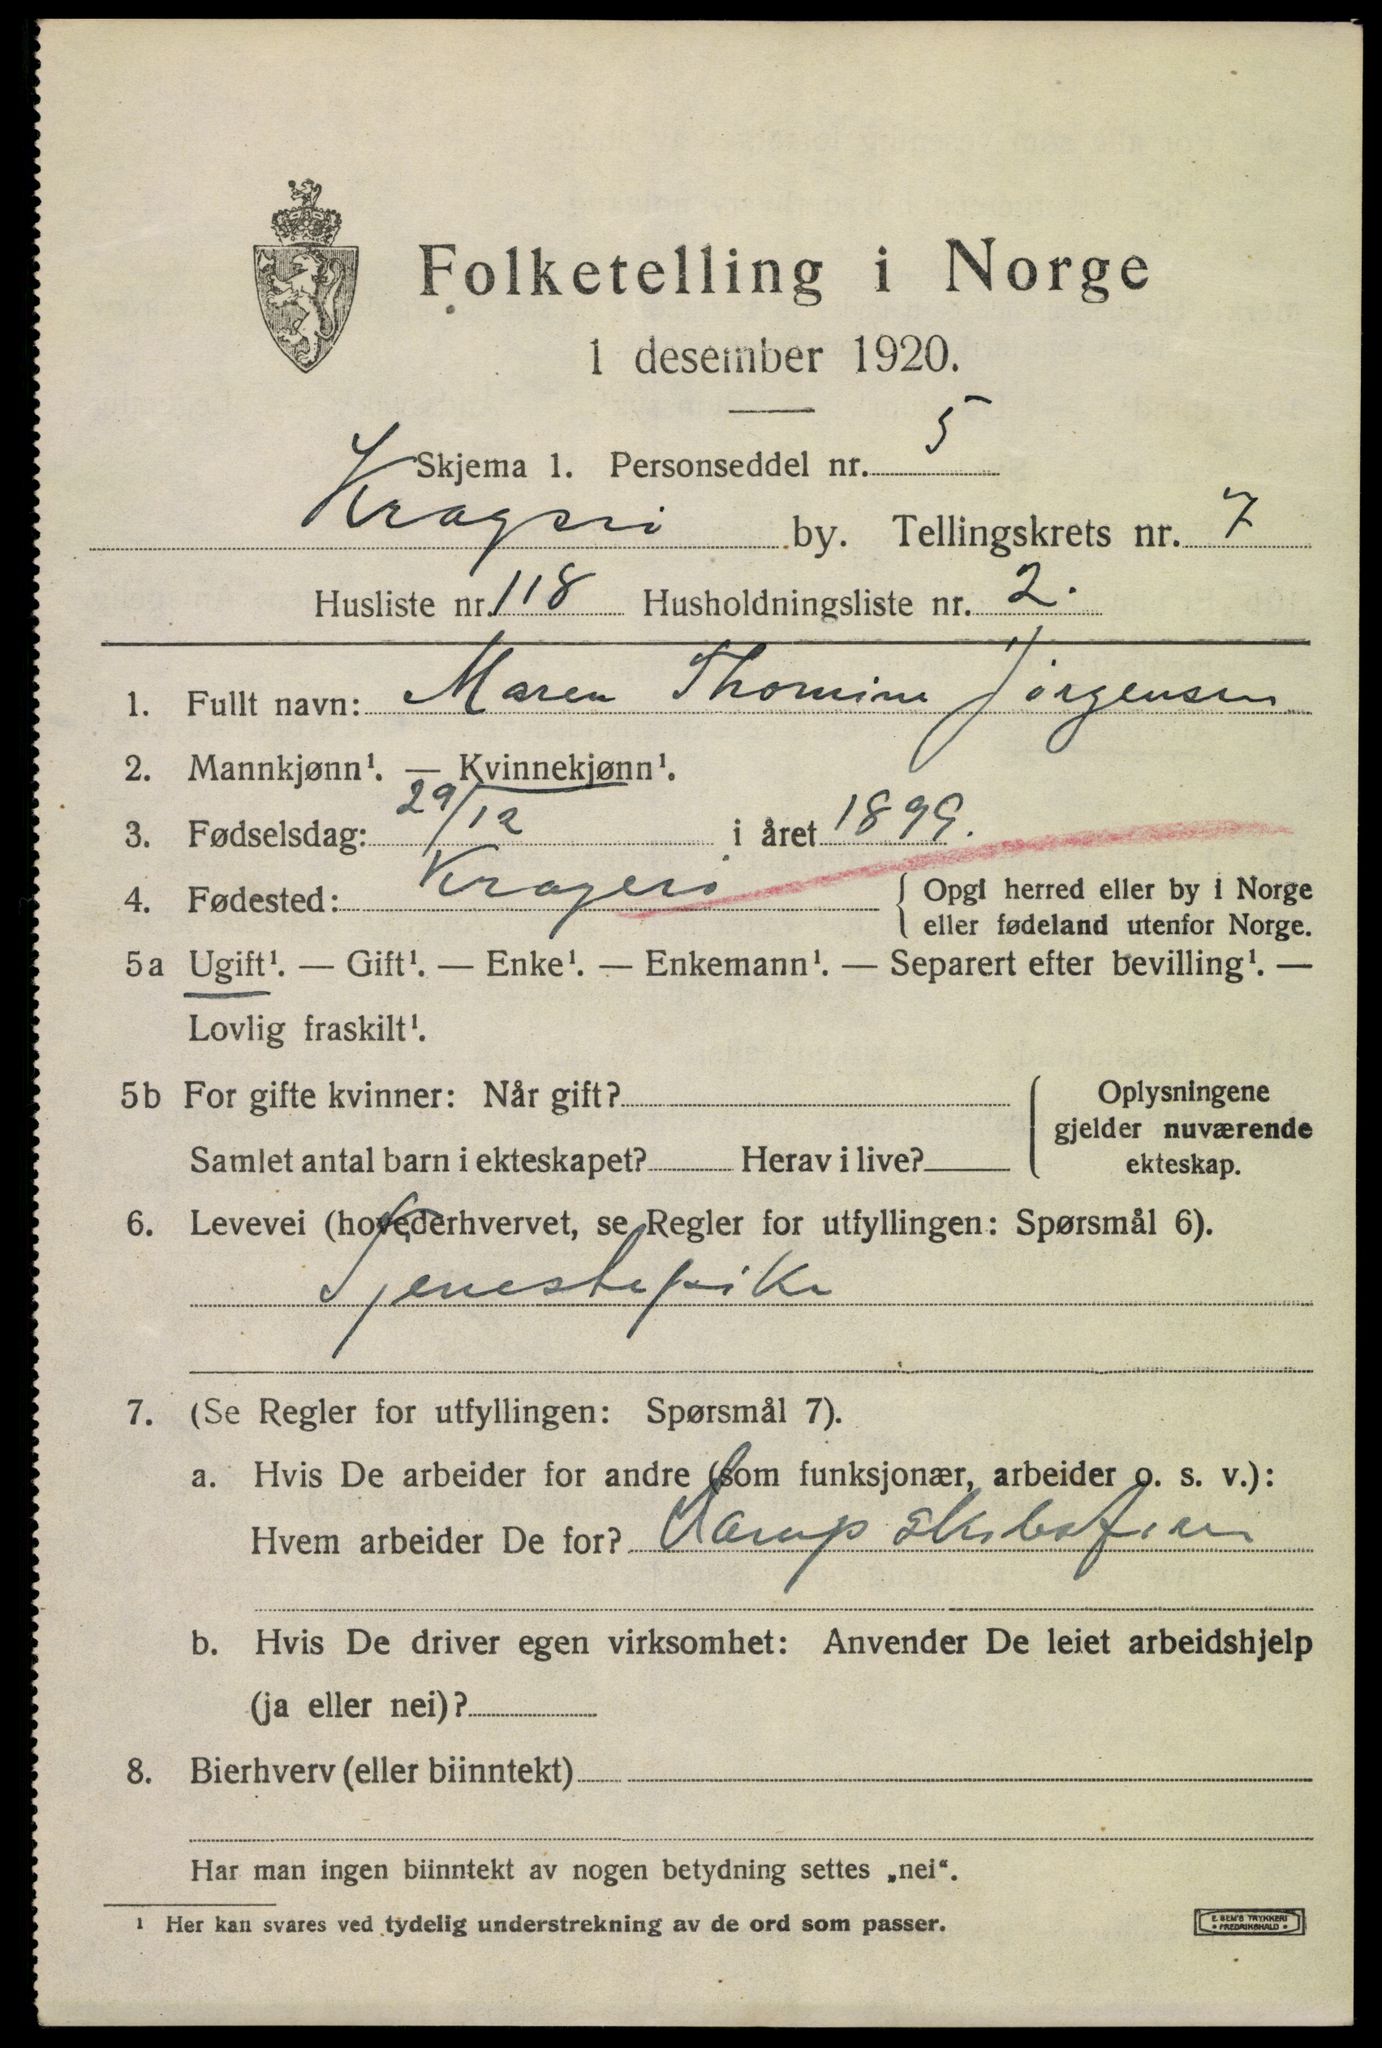 Folketelling i Norge
1 desember 1920.
Skjema 1. Personseddel nr. 5
Kragerö by. Tellingskrets nr. 7
Husliste nr. 118 Husholdningsliste nr. 2.
1. Fullt navn: Maren Thomine Jörgensen
2. Mannkjønn¹. — Kvinnekjønn¹.
3. Fødselsdag: 29/12 i året 1899.
4. Fødested: Kragerö { Opgi herred eller by i Norge
eller fødeland utenfor Norge.
5a Ugift¹. — Gift¹. — Enke¹. — Enkemann¹. — Separert efter bevilling¹. —
Lovlig fraskilt¹.
5b For gifte kvinner: Når gift? { Oplysningene
gjelder nuværende
Samlet antal barn i ekteskapet? Herav i live? ekteskap.
6. Levevei (hovederhvervet, se Regler for utfyllingen: Spørsmål 6).
Tjenestepike
7. (Se Regler for utfyllingen: Spørsmål 7).
a. Hvis De arbeider for andre (som funksjonær, arbeider o. s. v.):
Hvem arbeider De for?
b. Hvis De driver egen virksomhet: Anvender De leiet arbeidshjelp
(ja eller nei)?
8. Bierhverv (eller biinntekt)
Har man ingen biinntekt av nogen betydning settes „nei“.
¹ Her kan svares ved tydelig understrekning av de ord som passer.
E. SEM'S TRYKKERI
• FREDRIKSHALD •